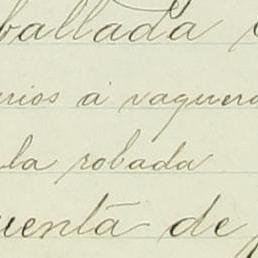 ballada
rios á vaquero
la robada
uenta de